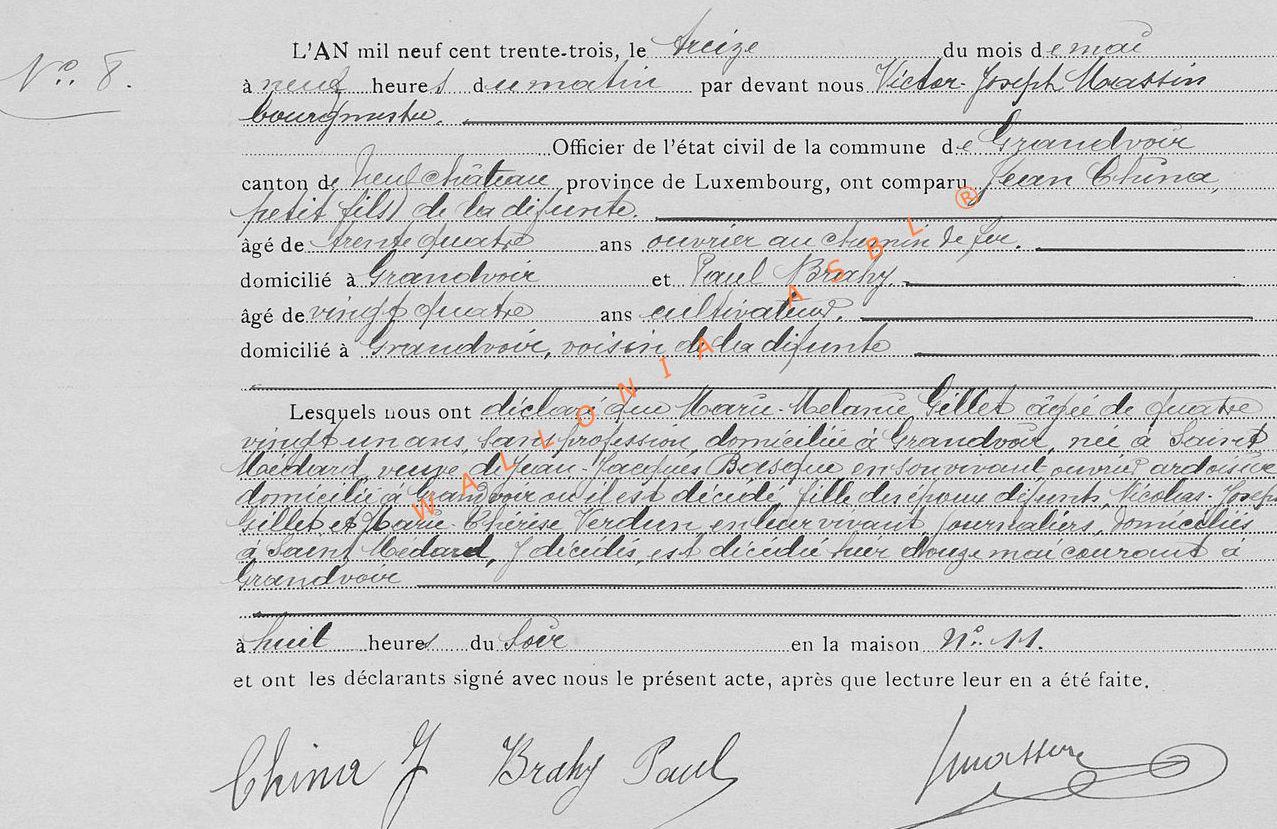 N° 8.
L'AN mil neuf cent trente-trois, le treize du mois de mai
à neuf heures du matin par devant nous Victor-Joseph Massin
bourgmestre.
Officier de l'état civil de la commune de Grandvoir
canton de Neufchâteau province de Luxembourg, ont comparu Jean China,
petit fils de la défunte.
âgé de trente quatre ans ouvrier au chemin de fer.
domicilié à Grandvoir et Paul Brahy.
âgé de vingt quatre ans cultivateur.
domicilié à Grandvoir, voisin de la défunte
Lesquels nous ont déclaré que Marie-Mélanie Gillet âgée de quatre
vingt un ans, sans profession, domiciliée à Grandvoir, née à Saint
Médard, veuve de Jean-Jacques Basque en son vivant ouvrier ardoisier
domicilié à Grandvoir où il est décédé, fille des époux défunts Nicolas-Joseph
Gillet et Marie-Thérèse Verdun, en leur vivant journaliers, domiciliés
à Saint Médard, y décédés, est décédée hier douze mai courant à
Grandvoir
à huit heures du soir en la maison N° 11.
et ont les déclarants signé avec nous le présent acte, après que lecture leur en a été faite.
China J Brahy Paul Jmassin
WALLONIA ASBL ®